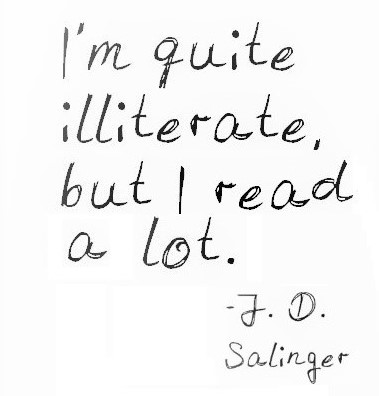 I'm quite
illiterate,
but I read
a lot.
-J. D.
Salinger